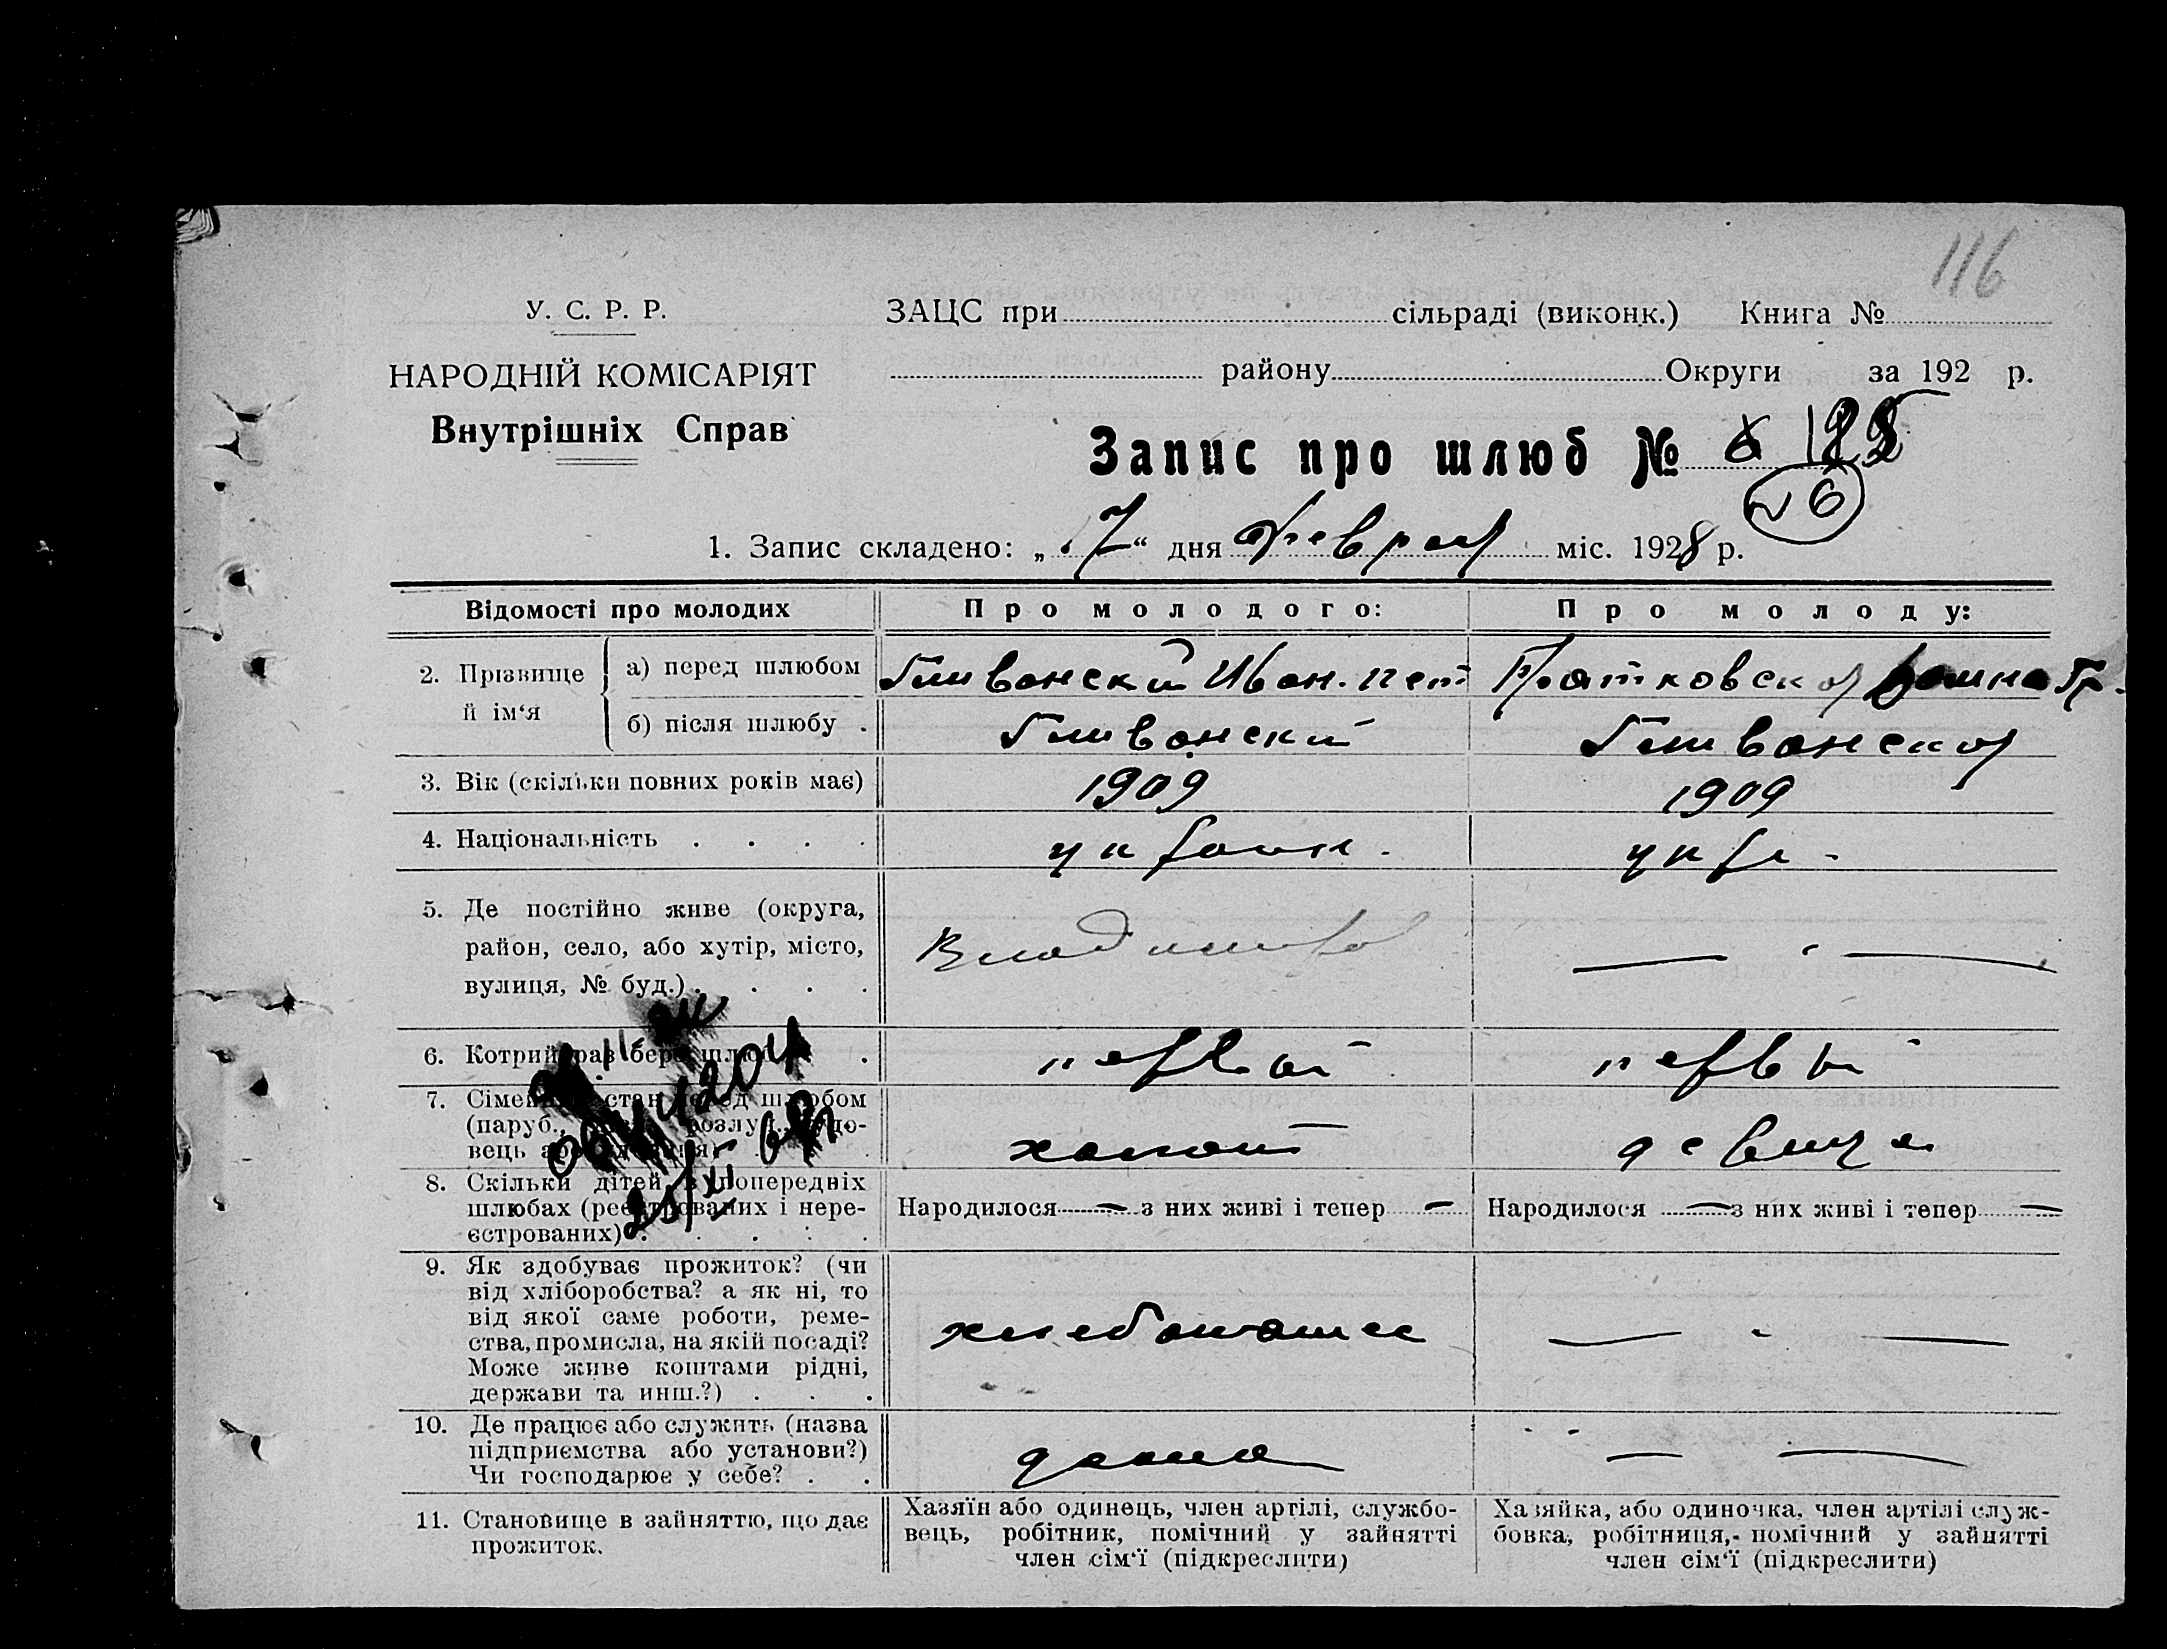 116
У. С. Р. Р.
ЗАЦС при сільраді (виконк.) Книга №
НАРОДНІЙ КОМІСАРІЯТ
району Округи за 192 р.
Внутрішніх Справ
Запис про шлюб №
№ 6
1. Запис складено: „7“ дня феврал міс. 1928 р.
Відомості про молодих
Про молодого:
Про молоду:
2. Прізвище й ім‘я
а) перед шлюбом
Гливанский Иван. пет
б) після шлюбу .
Гливанский
Гливанская
3. Вік (скільки повних років має)
1909
1909
4. Національність . . . .
украин.
укр.
5. Де постійно живе (округа,
район, село, або хутір, місто,
вулиця, № буд.) . . . .
6. Котрий раз бере шлюб .
первый
первый
7. Сімейний стан перед шлюбом
(паруб., розлуч., вдо-
вець або
холост
девица
8. Скільки дітей в попередніх
шлюбах (реєстрованих і нере-
єстрованих) . . . .
Народилося — з них живі і тепер —
Народилося — з них живі і тепер —
9. Як здобуває прожиток? (чи
від хліборобства? а як ні, то
від якої саме роботи, реме-
ства, промисла, на якій посаді?
Може живе коштами рідні,
держави та инш.?) . . .
10. Де працює або служить (назва
підприємства або установи?)
Чи господарює у себе? . .
дома
11. Становище в зайняттю, що дає
прожиток.
Хазяїн або одинець, член артілі, службо-
вець, робітник, помічний у зайнятті
член сім‘ї (підкреслити)
Хазяйка, або одиночка, член артілі служ-
бовка, робітниця, помічний у зайнятті
член сім‘ї (підкреслити)